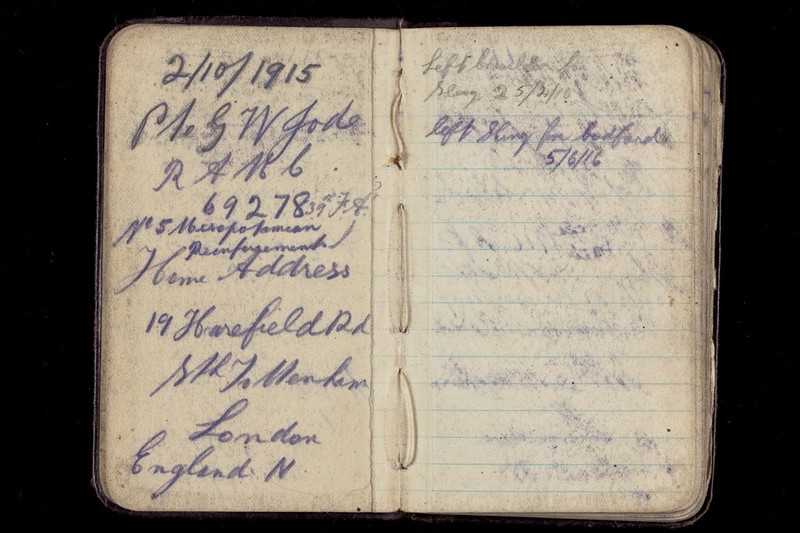 2/10/1915
Pte G W Jode
R A M C
69278 39th F.A.
No 5 Mesopotamian
Reinforcements
Home Address
19 Harefield Rd
Sth Tottenham
London
England N
Left for
Sling 25/5/16
left Sling for Codford
5/6/16